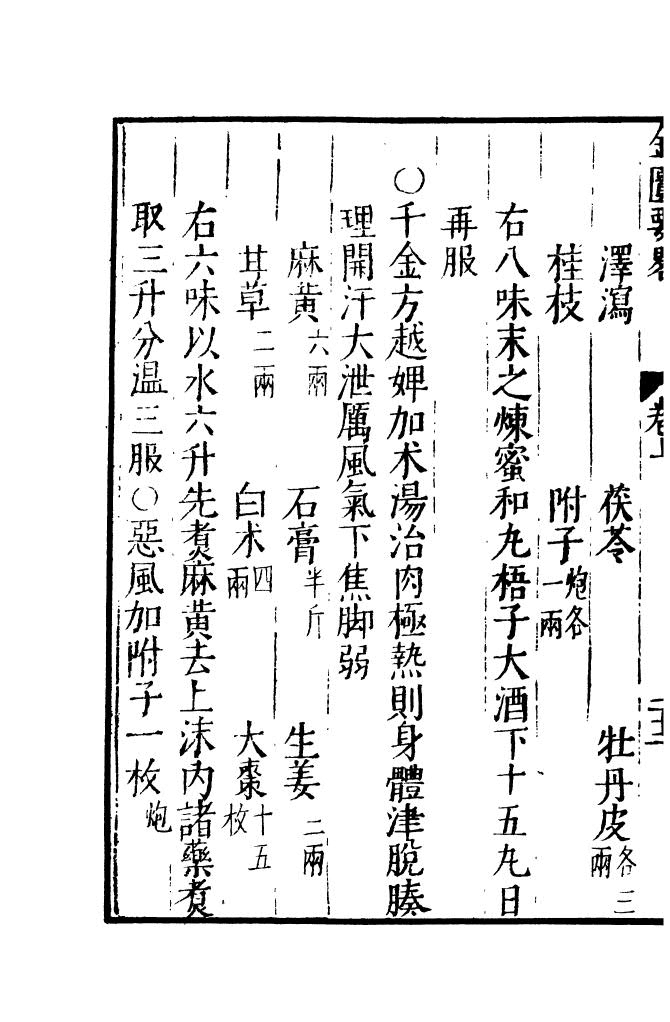 澤瀉　茯苓　牡丹皮各三兩
桂枝　附子炮各一兩
右八味末之煉蜜和丸梧子大酒下十五丸日
再服
○千金方越婢加术湯治肉極熱則身體津脫腠
理開汗大泄厲風氣下焦脚弱
麻黃六兩　石膏半斤　生姜二兩
甘草二兩　白术四兩　大棗十五枚
右六味以水六升先煮麻黃去上沫內諸藥煮
取三升分溫三服○惡風加附子一枚炮